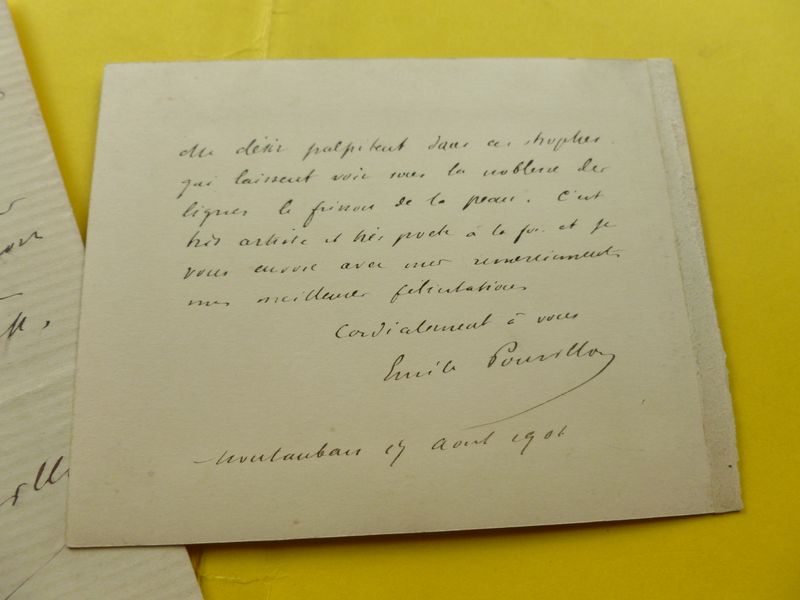 du désir palpitent dans ces strophes
qui laissent voir sous la noblesse des
lignes le frisson de la peau. C'est
très artiste et très poète à la fois et je
vous envoie avec mes remerciements
mes meilleures félicitations
Cordialement à vous
Emile Pouvillon
Montauban 17 Août 1901